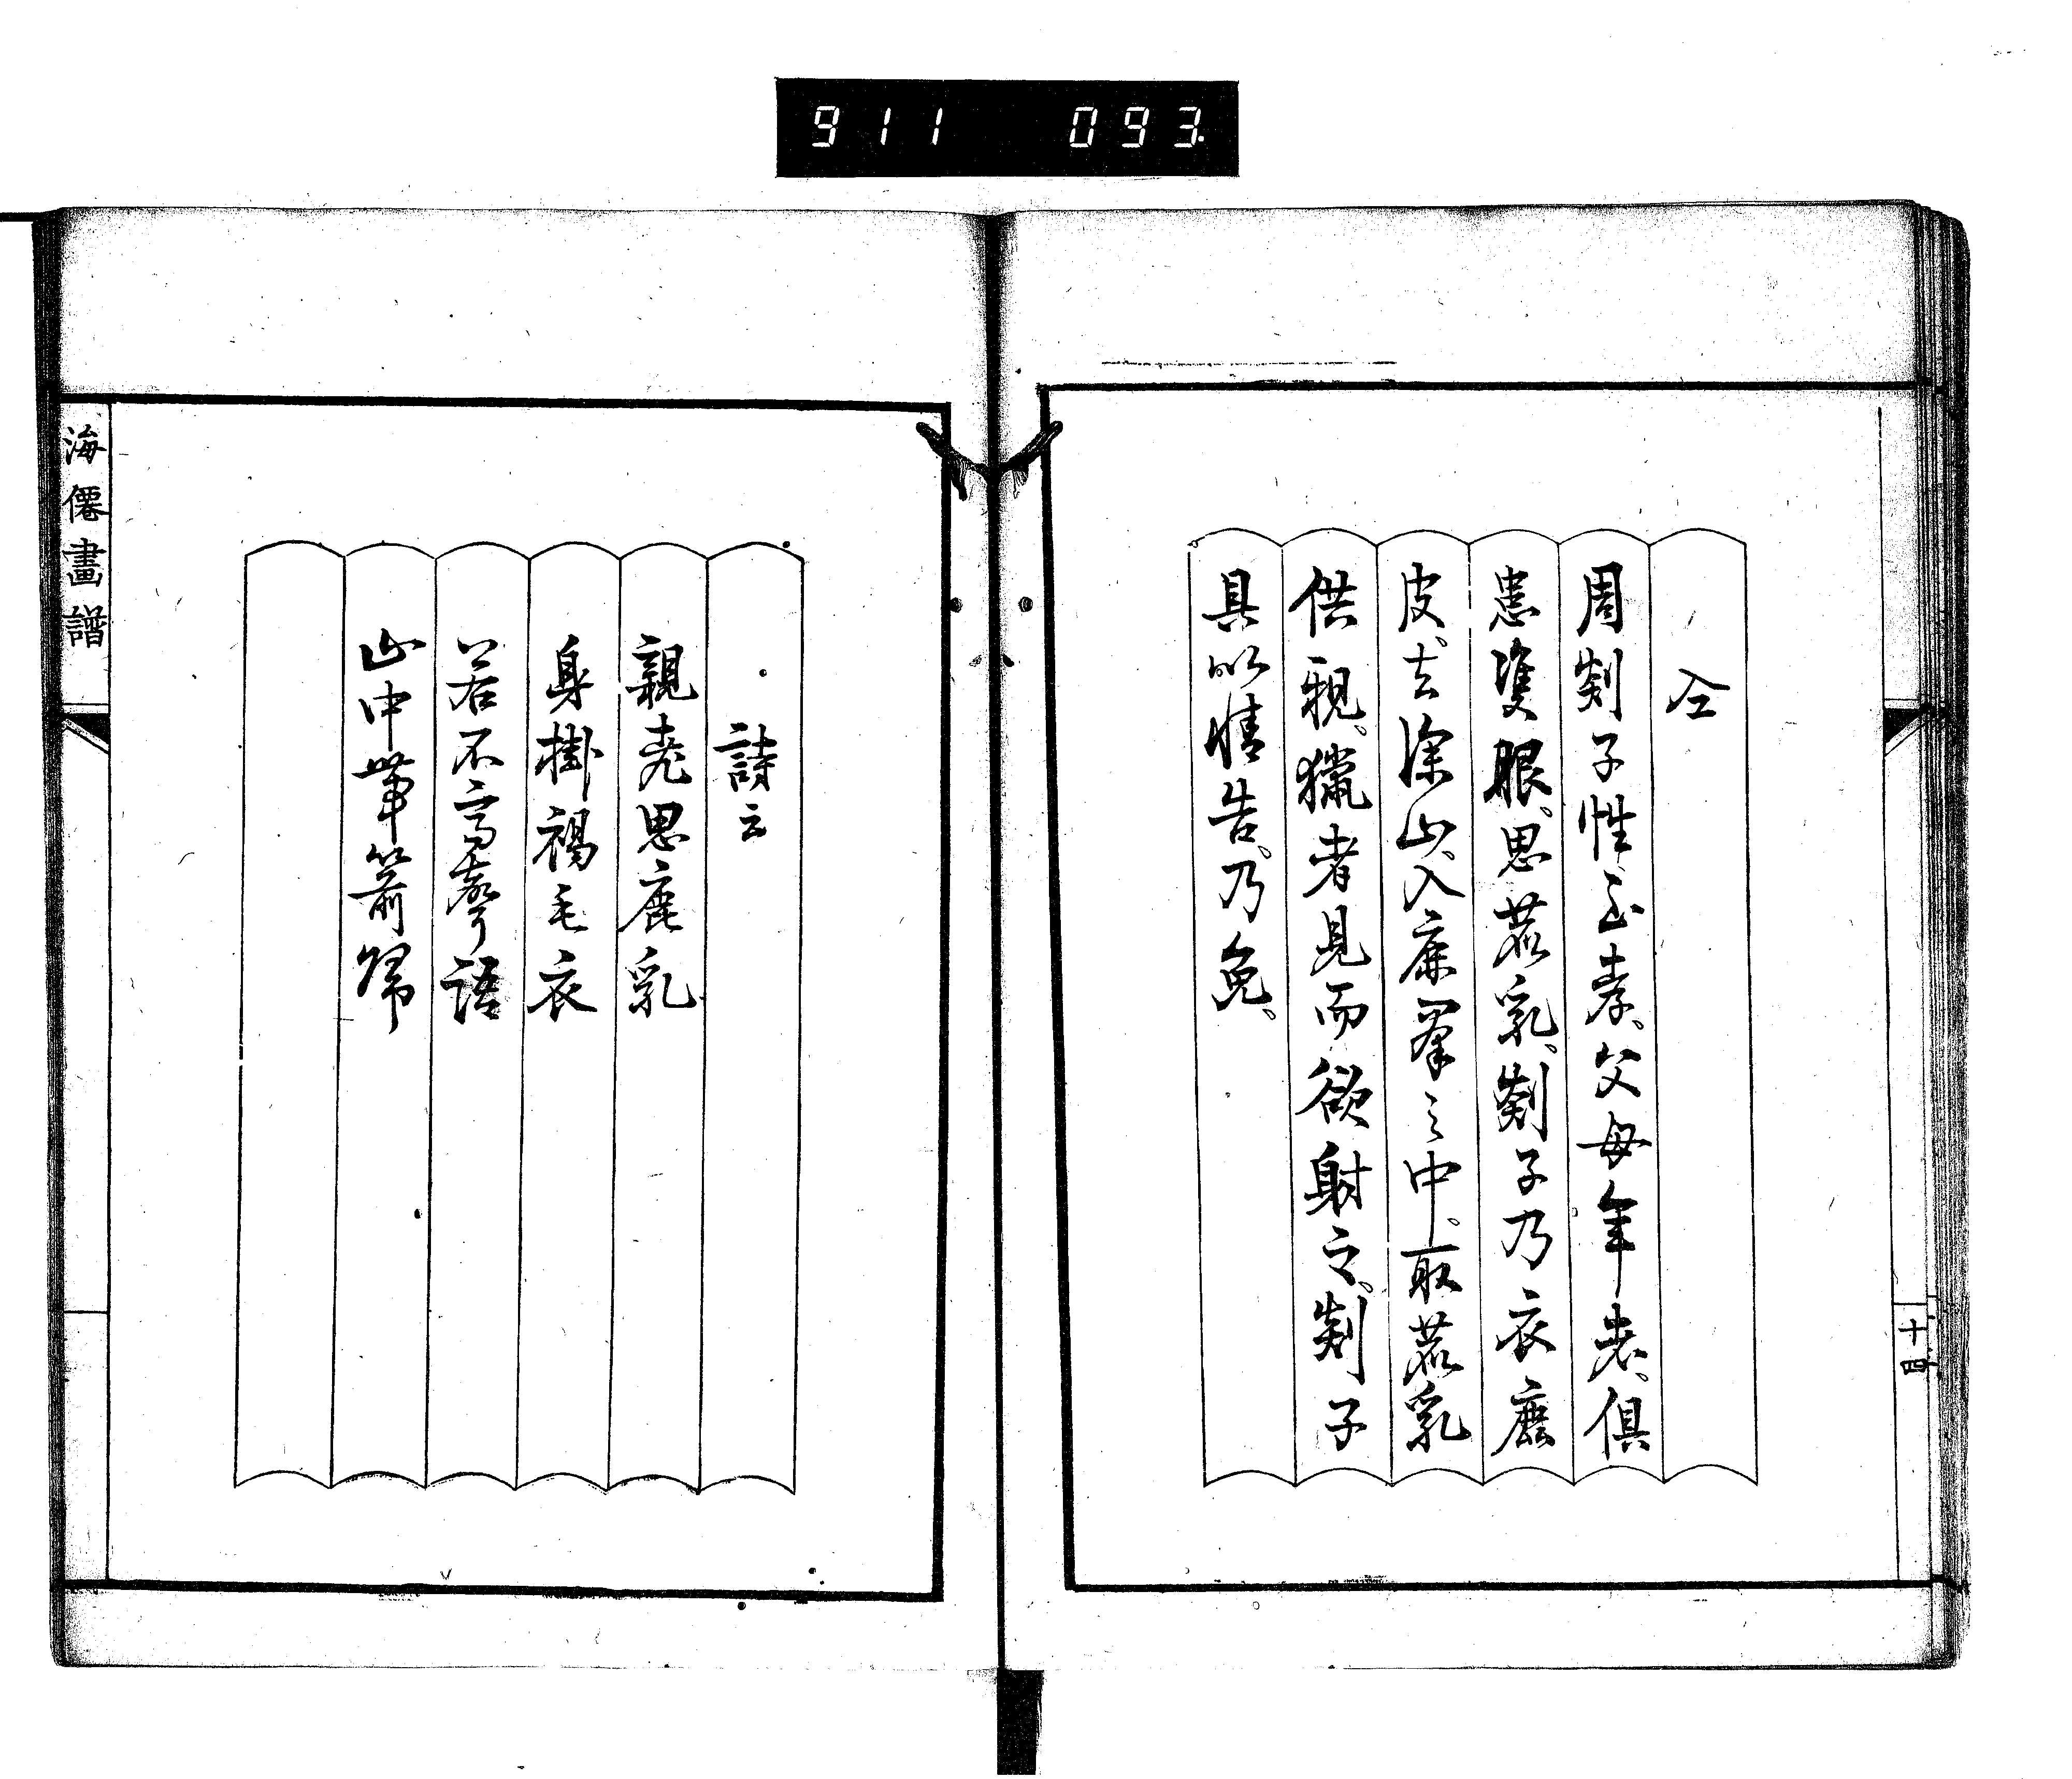 911 093.
十四
仝
周剡子性至孝、父母年老、俱
患雙眼、思鹿乳、剡子乃衣鹿
皮、去深山、入鹿羣之中、取鹿乳
供親、獵者見而欲射之、剡子
具以情告、乃免、
詩云
親老思鹿乳
身掛褐毛衣
若不高聲語
山中帶箭歸
海僊畫譜